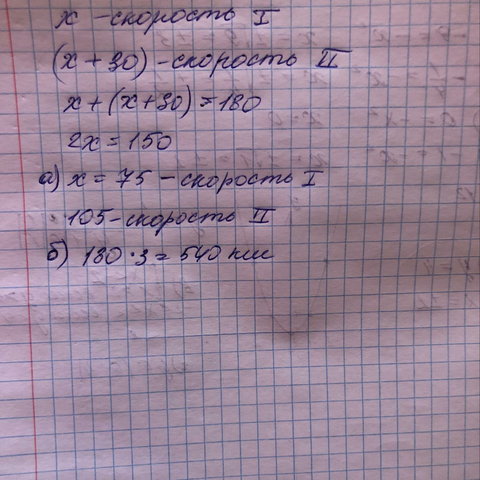 x - скорость I
(x + 30) - скорость II
x + (x + 30) = 180
2x = 150
а) x = 75 - скорость I
105 - скорость II
б) 180 · 3 = 540 км